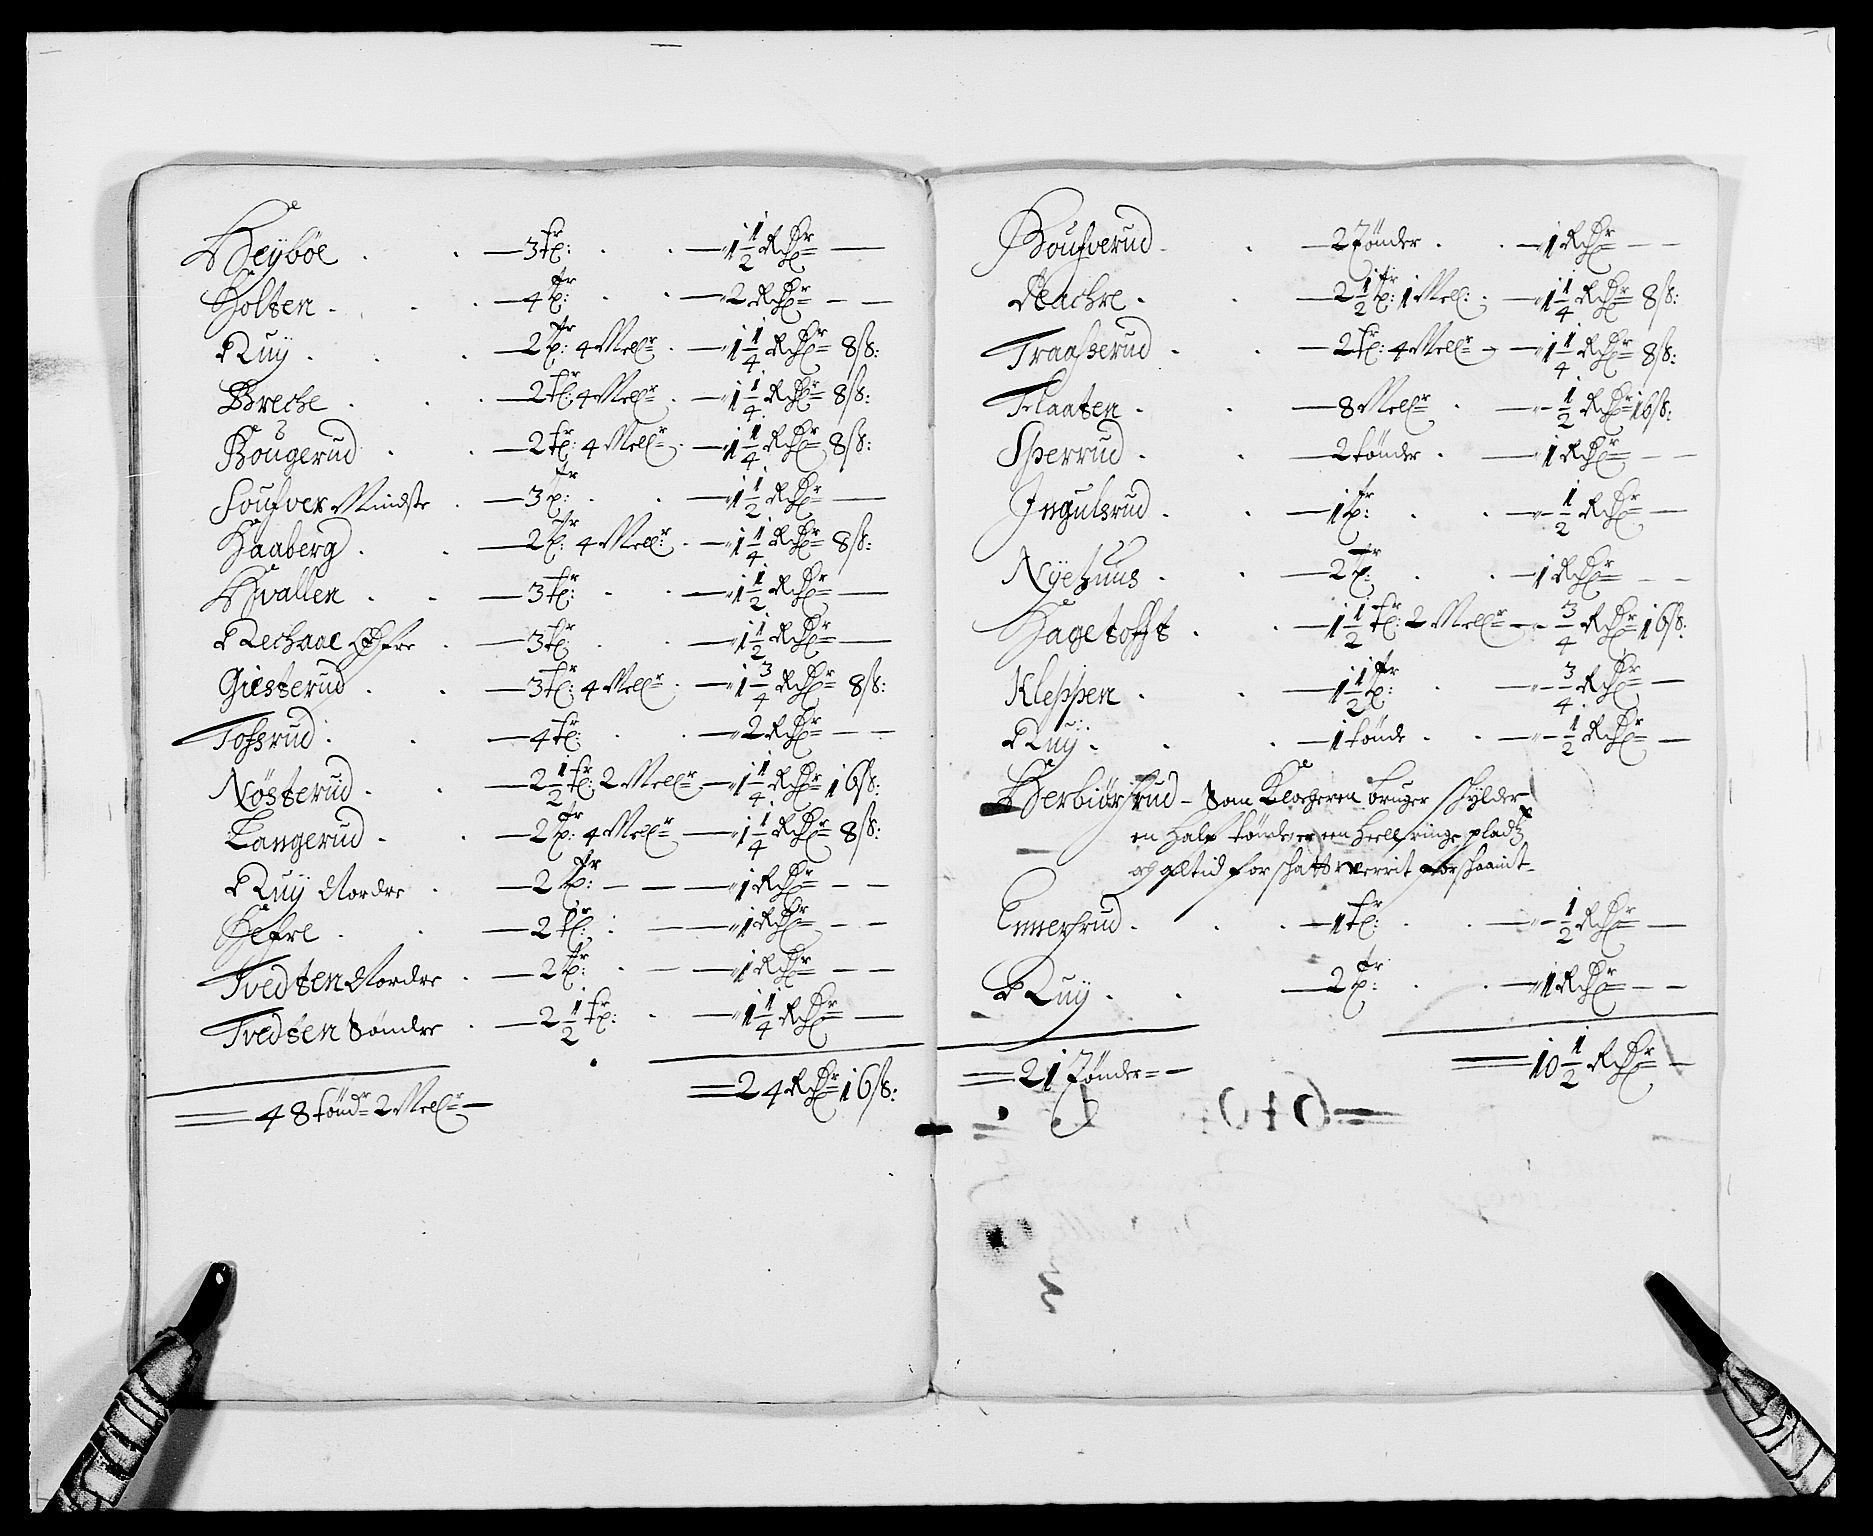 Heybøe . . — 3 tr: . . — 1 1/2 Rdr —
Holten . . . — 4 tr: . . — 2 Rdr — —
Ruy . . . — 2 tr: 4 Mellr . — 1 1/4 Rdr 8 ß:
Breche . . . — 2 tr: 4 Mellr . — 1 1/4 Rdr 8 ß:
Bougerud . . — 2 tr: 4 Mellr . — 1 1/4 Rdr 8 ß:
Soufver Mindste . — 3 tr: . . — 1 1/2 Rdr —
Haaberg . . — 2 tr: 4 Mellr . — 1 1/4 Rdr 8 ß:
Hvallen . . — 3 tr: . . — 1 1/2 Rdr —
Rechaae Øfre . — 3 tr: . . — 1 1/2 Rdr —
Giesterud . . — 3 tr: 4 Mellr . — 1 3/4 Rdr 8 ß:
Tossrud . . — 4 tr: . . — 2 Rdr — —
Nøsterud . . — 2 1/2 tr: 2 Mellr — 1 1/4 Rdr 16 ß:
Langerud . . — 2 tr: 4 Mellr — 1 1/4 Rdr 8 ß:
Ruy Nordre . — 2 tr: — — — 1 Rdr — —
Hefre . . — 2 tr: . — 1 Rdr — —
Tvedten Nordre . — 2 tr: . — — 1 Rdr — —
Tvedten Søndre . — 2 1/2 tr: . — 1 1/4 Rdr —
48 tøndr 2 Mellr — 24 Rdr 16 ß:
Boufverud . . — 2 Tønder . . — 1 Rdr — —
Nachre . . — 2 1/2 tr: 1 Mell: . — 1 1/4 Rdr 8 ß:
Traasserud . . — 2 tr: 4 Mellr — 1 1/4 Rdr 8 ß:
Flaaten . . — 8 Mellr . — 1/2 Rdr 16 ß:
Sperrud . . — 2 tønder . — 1 Rdr — —
Ingulsrud . . — 1 tr: . . — 1/2 Rdr —
Nyehuus . . — 2 tr: . . — 1 Rdr — —
Hagetofft . . — 1 1/2 tr: 2 Mellr — 3/4 Rdr 16 ß:
Kleppen . . — 1 1/2 tr: . — 3/4 Rdr —
Ruy . . . — 1 tønde . . — 1/2 Rdr —
Herbiørsrud – Som Klocheren bruger schylder
en half tønde, er een heell ringe pladtz
och altid for schatt werrit forschaant –
Ennersrud . . . — 1 tr: . . — 1/2 Rdr —
Ruy . . — 2 tr: . . — 1 Rdr — —
21 Tønder — 10 1/2 Rdr —